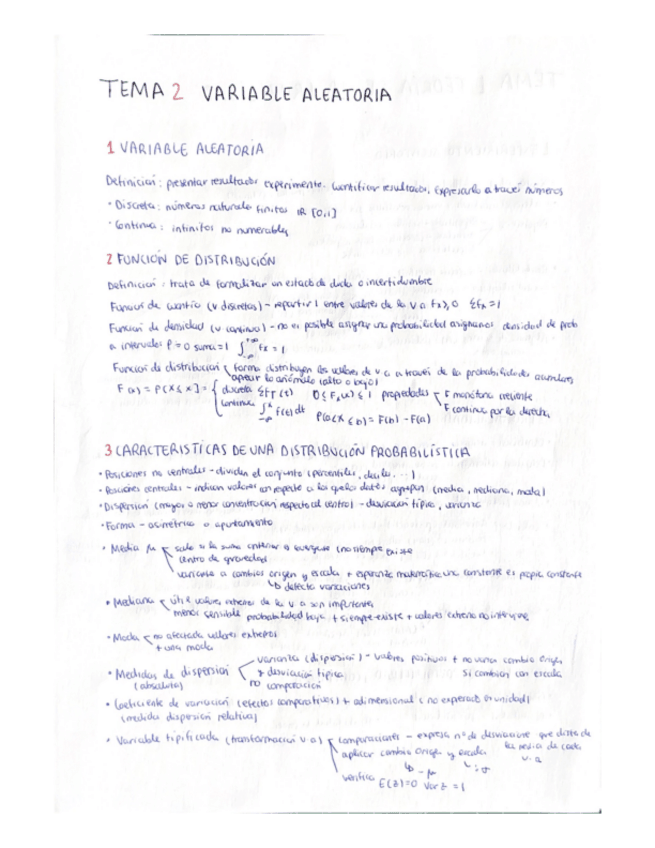 TEMA 2 VARIABLE ALEATORIA
1 VARIABLE ALEATORIA
Definición: presentar resultados experimento. Cuantificar resultados, expresarlo a través números
· Discreta: números naturales finitos IR [0,1]
· Continua: infinitos no numerables
2 FUNCIÓN DE DISTRIBUCIÓN
Definición: trata de formalizar un estado de duda o incertidumbre
Función de cuantía (v discretas) - repartir 1 entre valores de la v a fx≥0 Σfx=1
Función de densidad (v continua) - no es posible asignar una probabilidad asignamos densidad de prob
a intervalos P=0 suma=1 ∫ fx = 1
Función de distribución forma distribuyen los valores de v a a través de la probabilidades acumulares
apreciar lo anómalo (alto o bajo)
F(x) = P[X ≤ x] = discreta Σf(t) 0≤F(x)≤1 propiedades F monótona creciente
continua ∫ f(t)dt P(a<X≤b) = F(b) - F(a) F continua por la derecha
3 CARACTERISTÍCAS DE UNA DISTRIBUCIÓN PROBABILÍSTICA
· Posiciones no centrales - dividen el conjunto (percentiles, deciles...)
· Posiciones centrales - indican valores con respecto a los que los datos agrupan (media, mediana, moda)
· Dispersión (mayor o menor concentración respecto al centro) - desviación típica, varianza
· Forma - asimetría o apuntamiento
· Media μ
no siempre existe
centro de gravedad
variante a cambios origen y escala + esperanza matemática una constante es propia constante
↳ defecto variaciones
· Mediana útil valores extremo de la v a son importantes
menor sensible probabilidad baja + siempre existe + valores extremo no interviene
· Moda no afectada valores extremos
+ una moda
· Medidas de dispersión varianza (dispersión) - valores positivos + no varia cambio origen
(absoluta) + desviación típica si cambian con escala
no comparación
· Coeficiente de variación (efectos comparativos) + adimensional (no expresado unidad)
(medida dispersión relativa)
· Variable tipificada (transformación v a) comparaciones - expresa nº de desviaciones que dista de
aplicar cambio origen y escala la media de cada
↳ -μ ↳ :σ v.a
verifica E(Z)=0 Var Z = 1